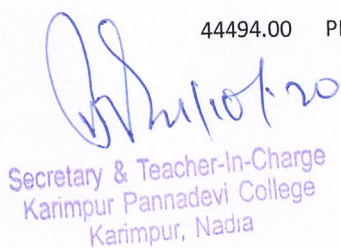 44494.00
Secretary & Teacher-In-Charge
Karimpur Pannadevi College
Karimpur, Nadia